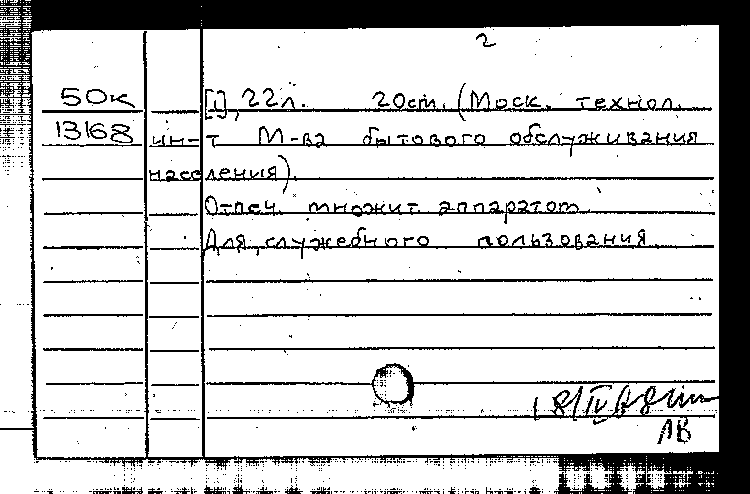 2
50к [1], 22л. 20ст. (Моск. технол.
13168 ин-т М-ва бытового обслуживания
населения).
Отпеч. множит. аппаратом
Для служебного пользования
ЛВ